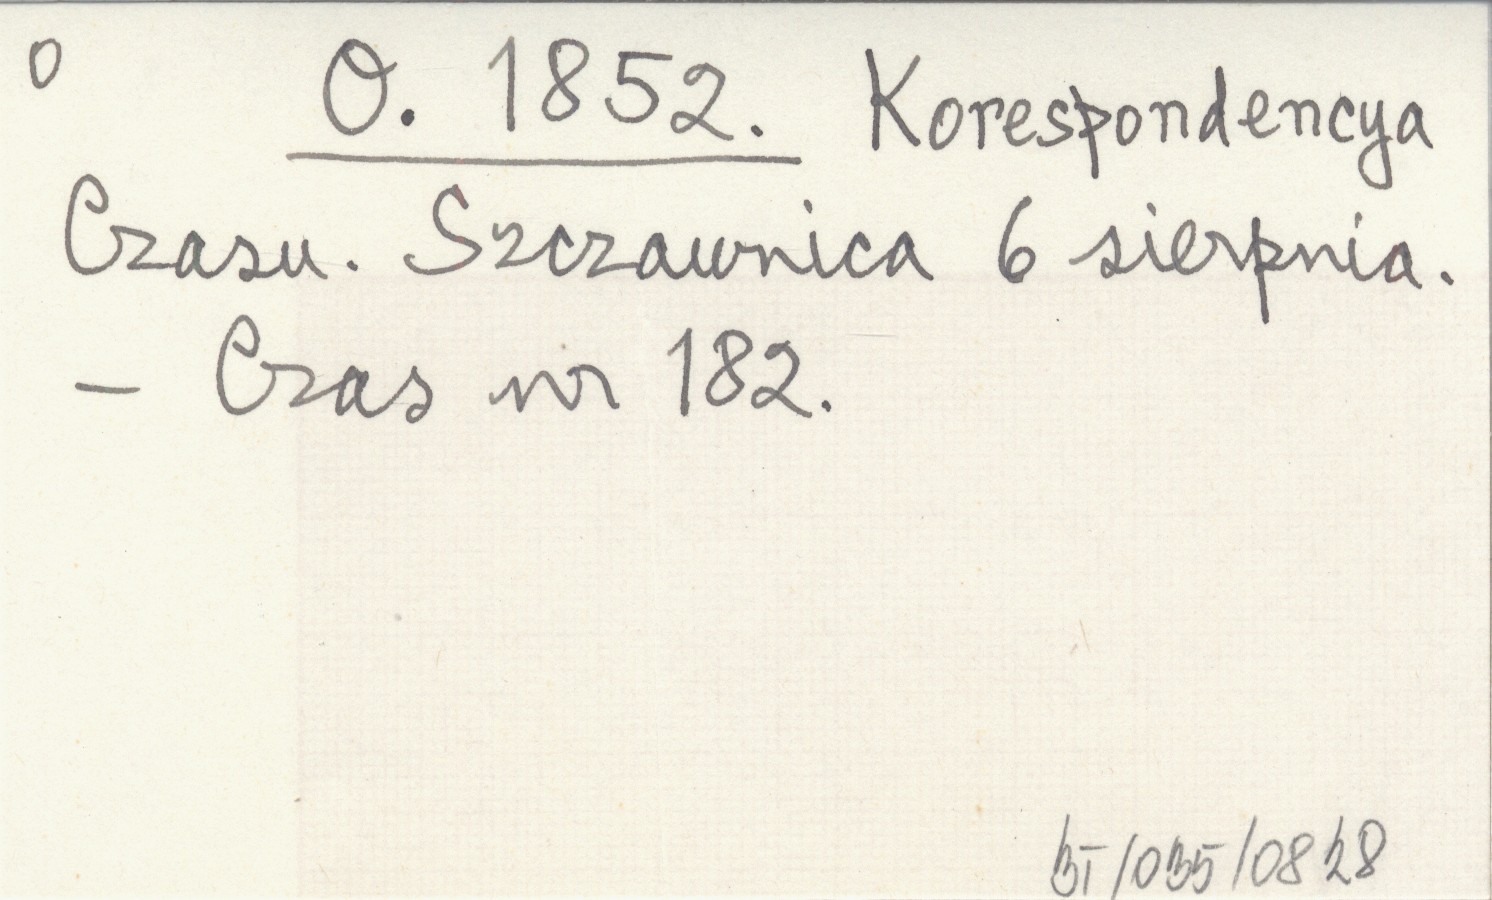 O O. 1852. Korespondencya
Czasu. Szczawnica 6 sierpnia.
– Czas nr 182.